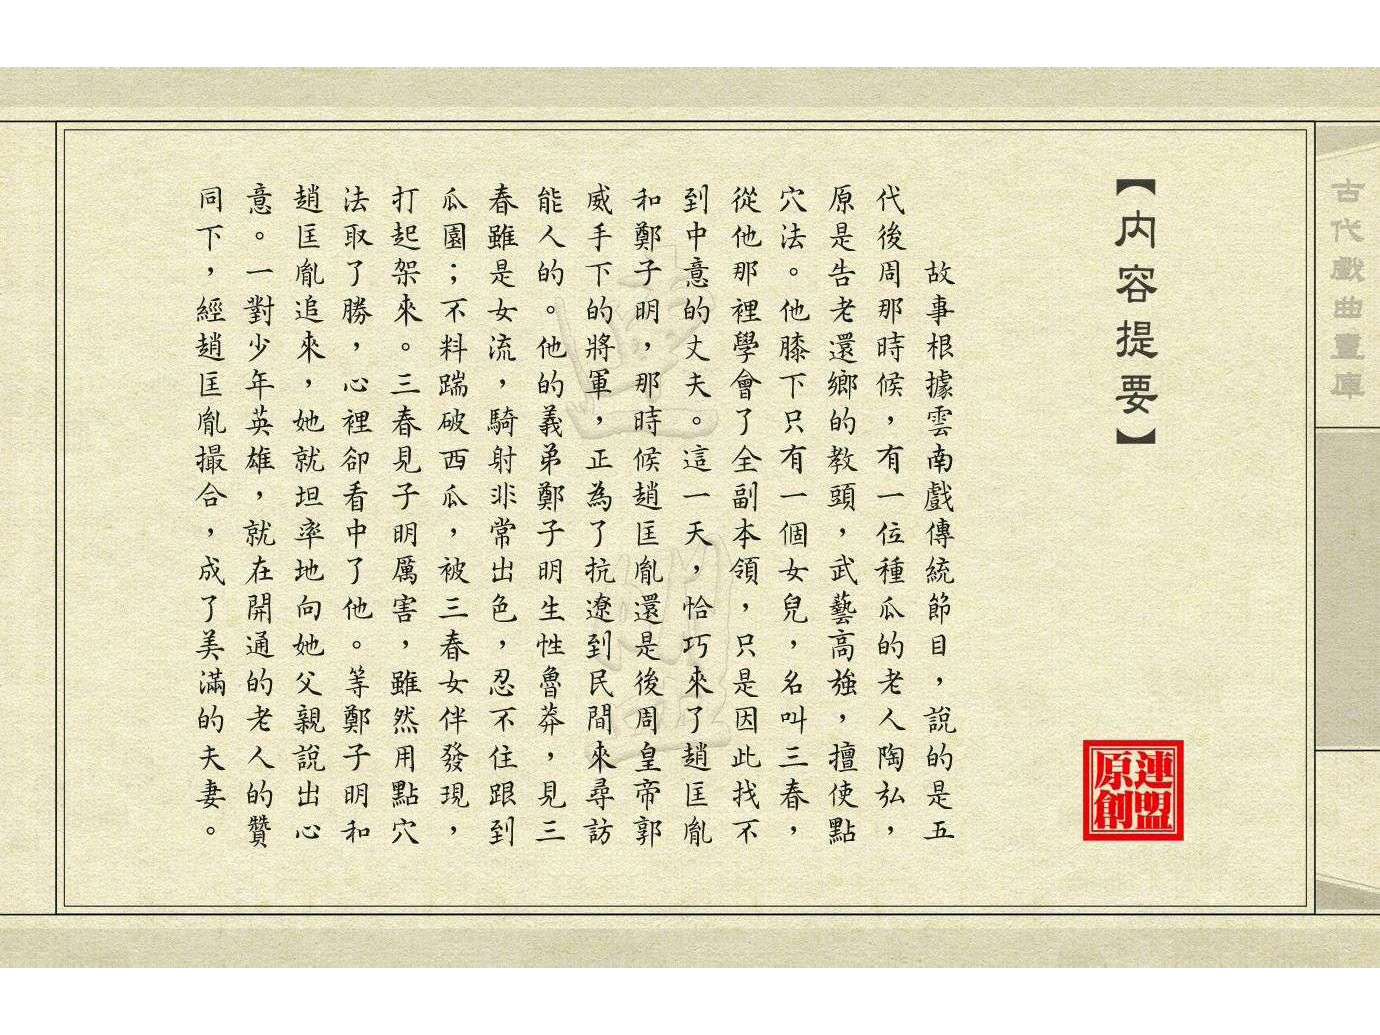 古代戲曲畫庫
【内容提要】
連盟
原創
故事根據雲南戲傳統節目，說的是五
代後周那時候，有一位種瓜的老人陶弘，
原是告老還鄉的教頭，武藝高強，擅使點
穴法。他膝下只有一個女兒，名叫三春，
從他那裡學會了全副本領，只是因此找不
到中意的丈夫。這一天，恰巧來了趙匡胤
和鄭子明，那時候趙匡胤還是後周皇帝郭
威手下的將軍，正為了抗遼到民間來尋訪
能人的。他的義弟鄭子明生性魯莽，見三
春雖是女流，騎射非常出色，忍不住跟到
瓜園；不料踹破西瓜，被三春女伴發現，
打起架來。三春見子明厲害，雖然用點穴
法取了勝，心裡卻看中了他。等鄭子明和
趙匡胤追來，她就坦率地向她父親說出心
意。一對少年英雄，就在開通的老人的贊
同下，經趙匡胤撮合，成了美滿的夫妻。